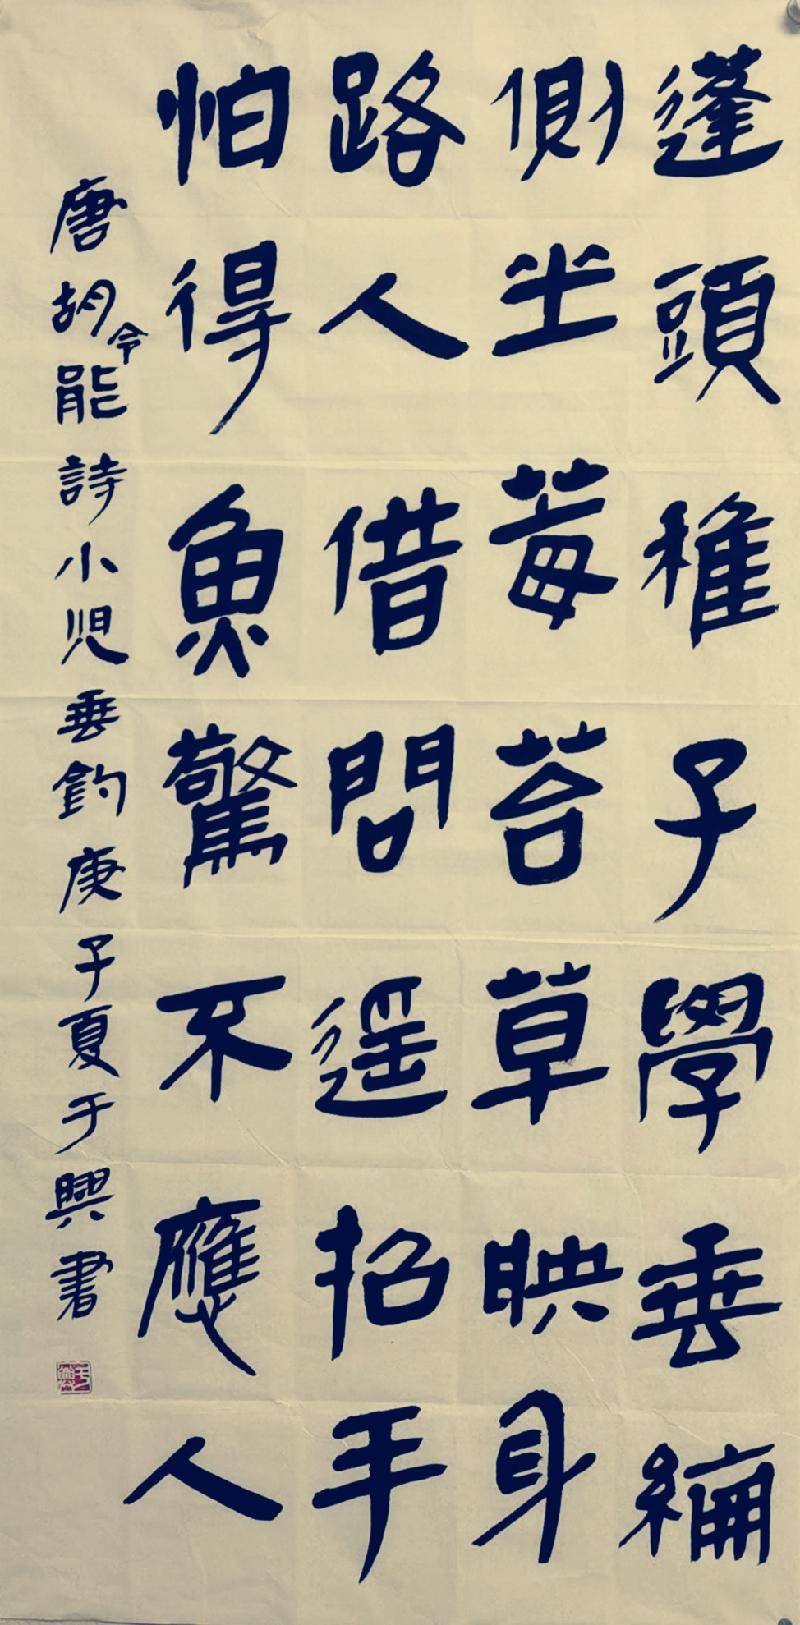 蓬頭稚子學垂綸
側坐莓苔草映身
路人借問遥招手
怕得魚驚不應人
唐胡令能詩小児垂釣庚子夏于興書